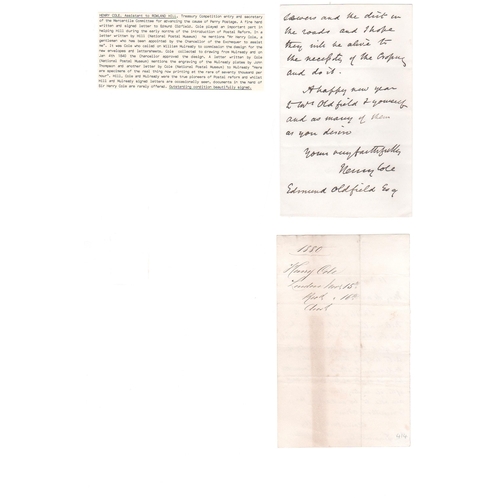 HENRY COLE. Assistant to ROWLAND HILL, Treasury Competition entry and secretary
of the Mercantile Committee for advancing the cause of Penny Postage. A fine hand
written and signed letter to Edmund Oldfield. Cole played an important part in
helping Hill during the early months of the introduction of Postal Reform. In a
letter written by Hill (National Postal Museum) he mentions "Mr Henry Cole, a
gentleman who has been appointed by the Chancellor of the Exchequer to assist
me". It was Cole who called on William Mulready to commission the design for the
new envelopes and lettersheets. Cole collected the drawing from Mulready and on
Jan 4th 1840 the Chancellor approved the design. A letter written by Cole
(National Postal Museum) mentions the engraving of the Mulready plates by John
Thompson and another letter by Cole (National Postal Museum) to Mulready "Here
are specimens of the real thing now printing at the rate of seventy thousand per
hour". Hill, Cole and Mulready were the true pioneers of Postal reform and whilst
Hill and Mulready signed letters are occasionally seen, documents in the hand of
Sir Henry Cole are rarely offered. Outstanding condition beautifully signed.
and the dirt in
the roads and I hope
they will be alive to
the necessity of the
and do it.
A happy new year
to Mrs Oldfield & yourself
and as many of them
as you desire
Yours very faithfully
Henry Cole
Edmund Oldfield Esq
1880
Henry Cole
London 15